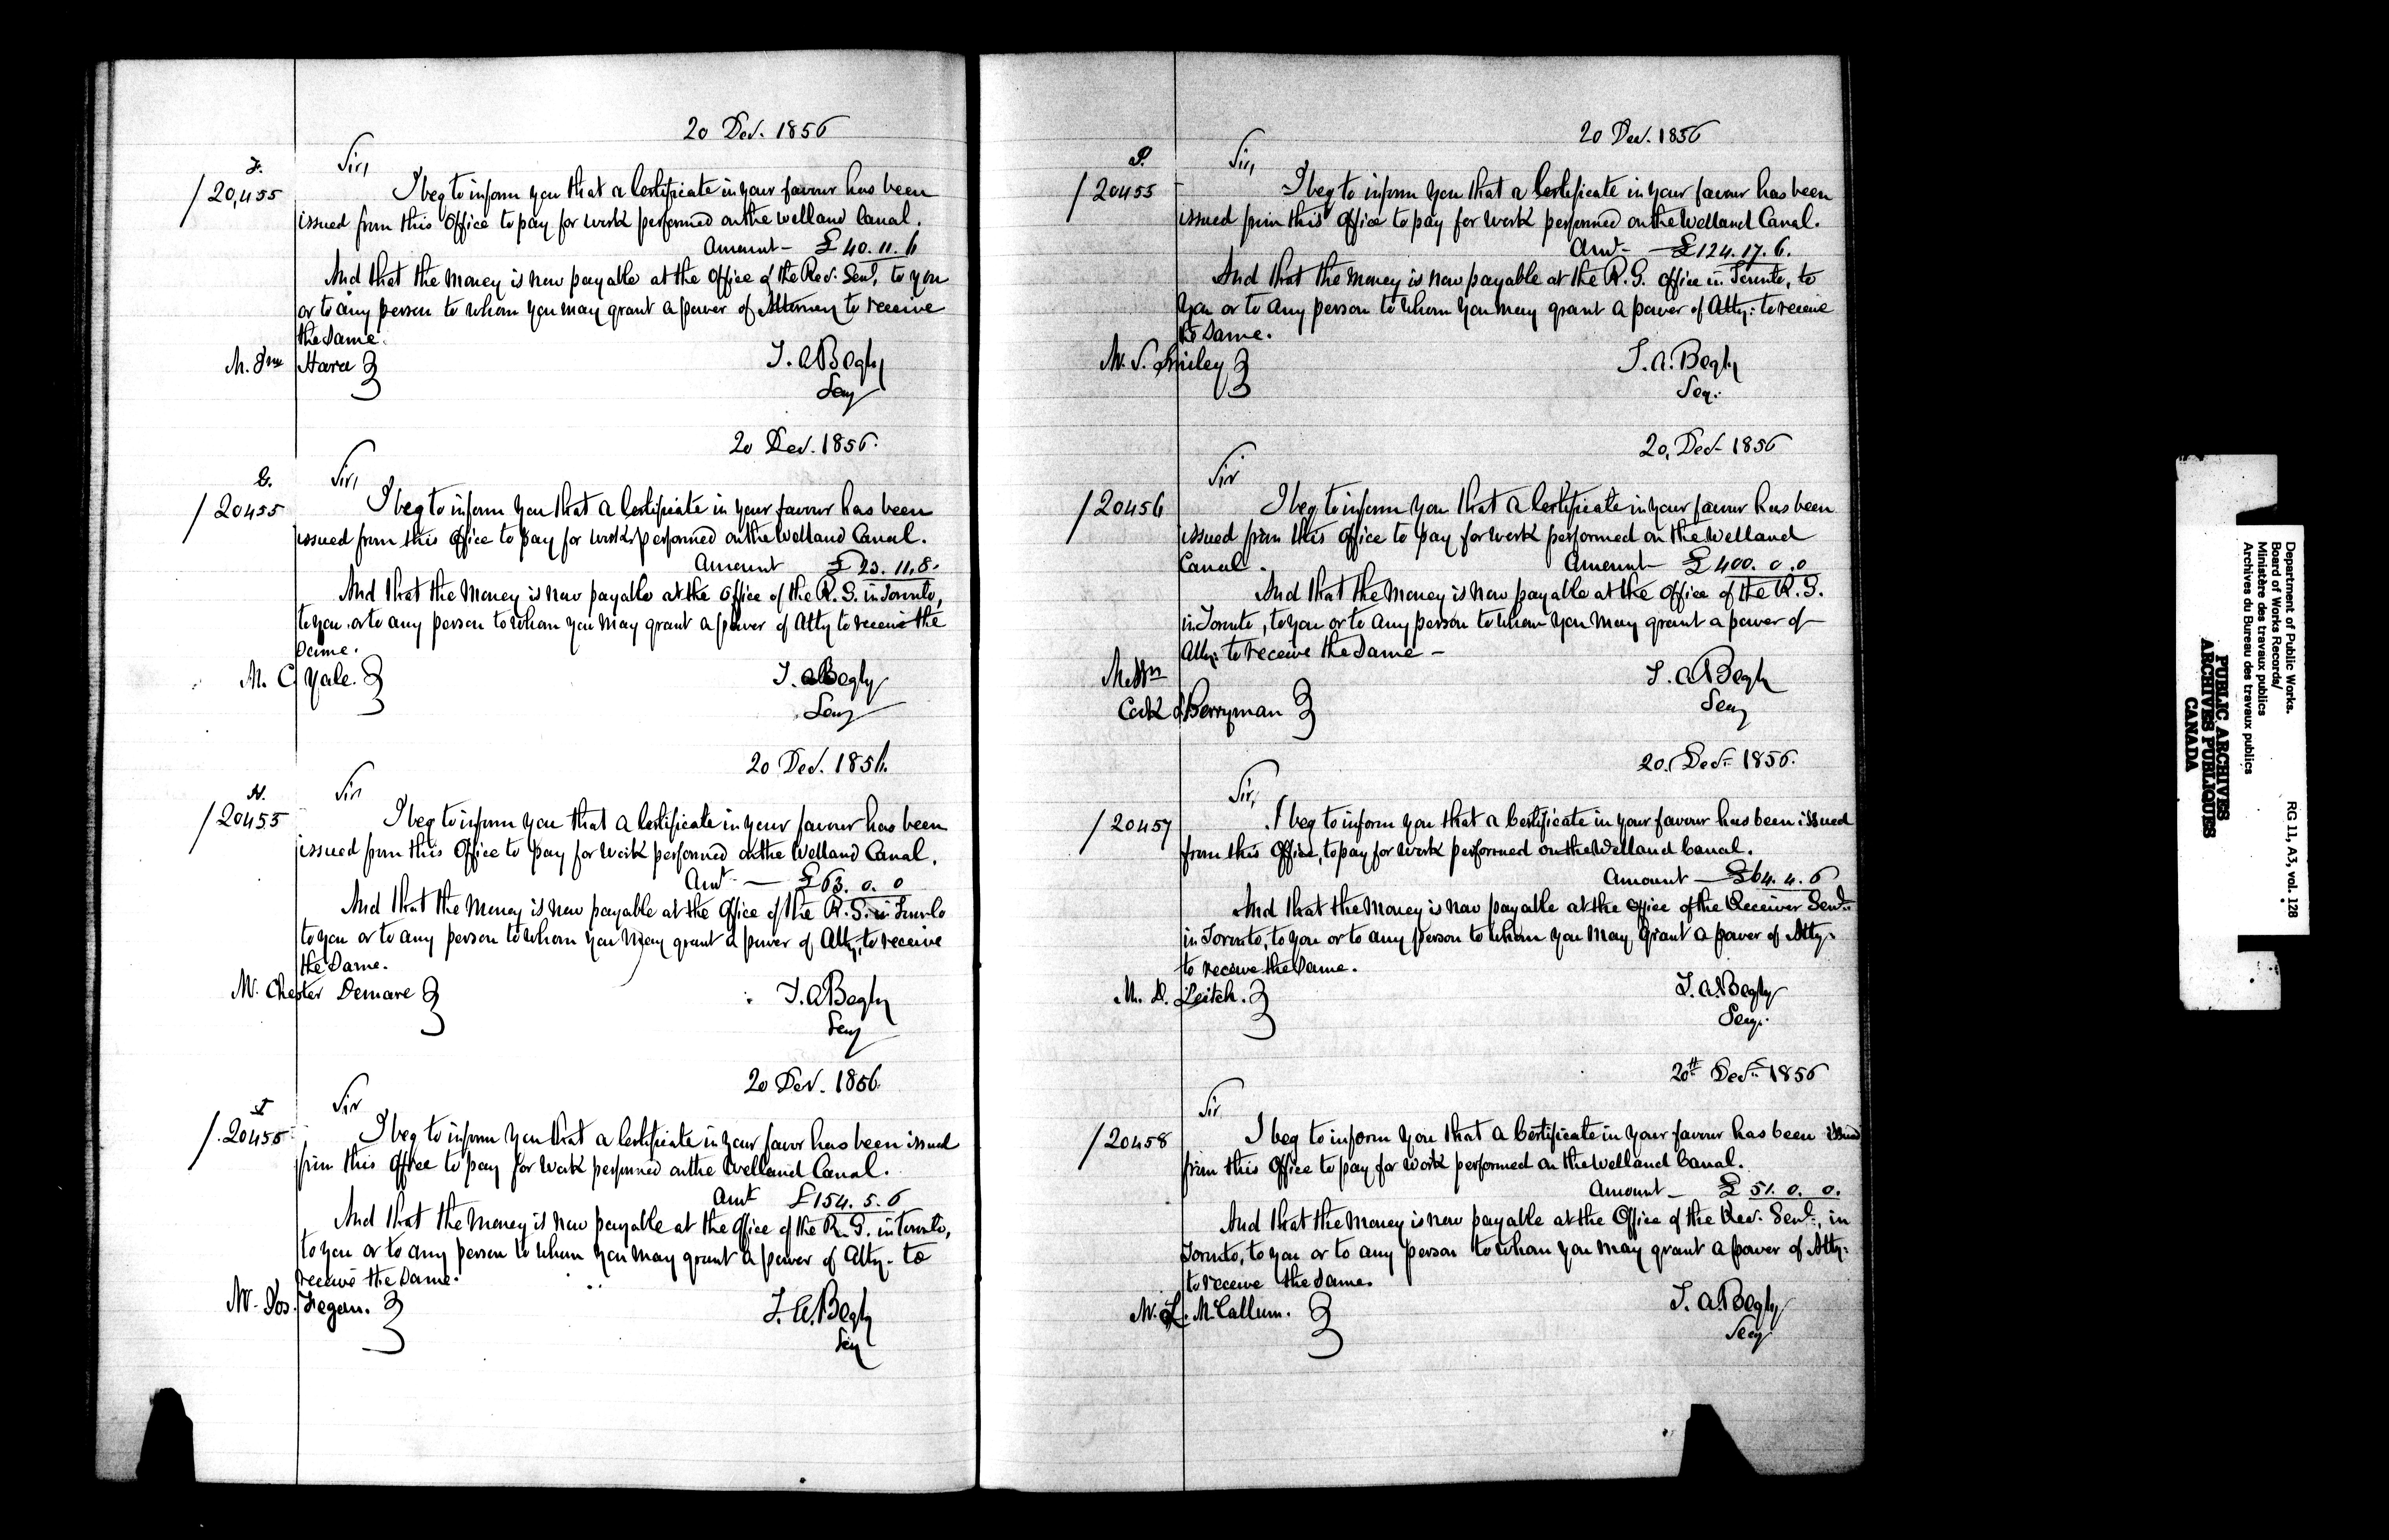 20 Dec. 1856
F.
/ 20,455
Sir,
I beg to inform you that a Certificate in your favour has been
issued from this Office to pay for work performed on the Welland Canal.
Amount - £ 40. 11. 6
And that the money is now payable at the Office of the Rec. Genl. to you
or to any person to whom you may grant a power of Attorney to receive
the same.
M. Jno Hare
T. A Begly
Secy
20 Dec. 1856.
G.
/ 20455
Sir,
I beg to inform you that a Certificate in your favour has been
issued from this Office to pay for work performed on the Welland Canal.
Amount £ 23. 11. 8.
And that the money is now payable at the Office of the R. G. in Toronto,
to you or to any person to whom you may grant a power of Atty to receive the
same.
M. C Yale.
T. A Begly
Secy
20 Dec. 1856.
H.
/ 20455
Sir
I beg to inform you that a Certificate in your favour has been
issued from this Office to pay for work performed on the Welland Canal.
Amt - £ 63. 0. 0
And that the money is now payable at the Office of the R. G. in Toronto
to you or to any person to whom you may grant a power of Atty, to receive
the same.
M. Chester Demare
T. A Begly
Secy
20 Dec. 1856.
I
/ 20455
Sir
I beg to inform you that a Certificate in your favor has been issued
from this Office to pay for work performed on the Welland Canal.
Amt £ 154. 5. 6
And that the money is now payable at the Office of the R. G. in Toronto,
to you or to any person to whom you may grant a power of Atty. to
receive the same.
M. Jos. Fegan.
T. A. Begly
Secy
20 Dec. 1856
P.
/ 20455
Sir,
I beg to inform you that a Certificate in your favour has been
issued from this Office to pay for work performed on the Welland Canal.
Amt - £ 124. 17. 6.
And that the money is now payable at the R. G. Office in Toronto, to
you or to any person to whom you may grant a power of Atty: to receive
the same.
M. S. Smiley
T. A. Begly
Secy.
20, Dec. 1856
/ 20456
Sir
I beg to inform you that a Certificate in your favour has been
issued from this Office to pay for work performed on the Welland
Canal. Amount - £ 400. 0. 0
And that the money is now payable at the Office of the R. G.
in Toronto, to you or to any person to whom you may grant a power of
Atty: to receive the same -
Messrs
Cook & Berryman
T. A Begly
Secy
20. Decr. 1856.
/ 20457
Sir,
I beg to inform you that a Certificate in your favour has been issued
from this Office, to pay for work performed on the Welland Canal.
Amount - £64. 4. 6
And that the money is now payable at the Office of the Receiver Genl.
in Toronto, to you or to any person to whom you may grant a power of Atty.
to receive the same.
M. D. Leitch.
T. A. Begly
Secy.
20th Decr. 1856
/ 20458
Sir
I beg to inform you that a Certificate in your favour has been issued
from this Office to pay for work performed on the Welland Canal.
Amount - £ 51. 0. 0.
And that the money is now payable at the Office of the Rec. Genl., in
Toronto, to you or to any person to whom you may grant a power of Atty:
to receive the same.
M. L. McCallum.
T. A. Begly
Secy
Department of Public Works.
Board of Works Records/
Ministère des travaux publics
Archives du Bureau des travaux publics
RG 11, A3, vol. 128
PUBLIC ARCHIVES
ARCHIVES PUBLIQUES
CANADA